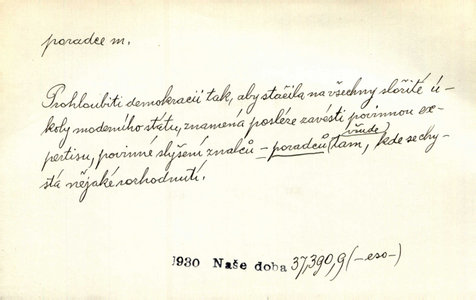 poradce m.
Prohloubiti demokracii tak, aby stačila na všechny složité ú-
koly moderního státu, znamená posléze zavésti povinnou ex-
pertisu, povinné slyšení znalců – poradců (všude) tam, kde se chy-
stá nějaké rozhodnutí.
1930 Naše doba 37,390,9 (–eso–)